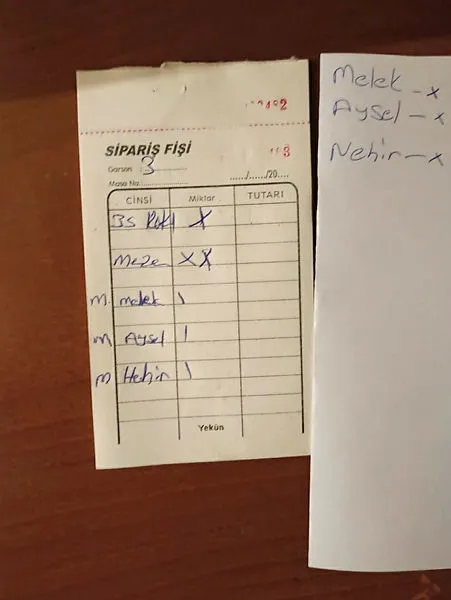 SİPARİŞ FİŞİ
Garson : 3
Masa No:
...../....../20....
CİNSİ Miktar TUTARI
35 Rakı X
Meze X X
M. melek 1
M Aysel 1
M Nehir 1
Yekün
Melek - x
Aysel - x
Nehir - x